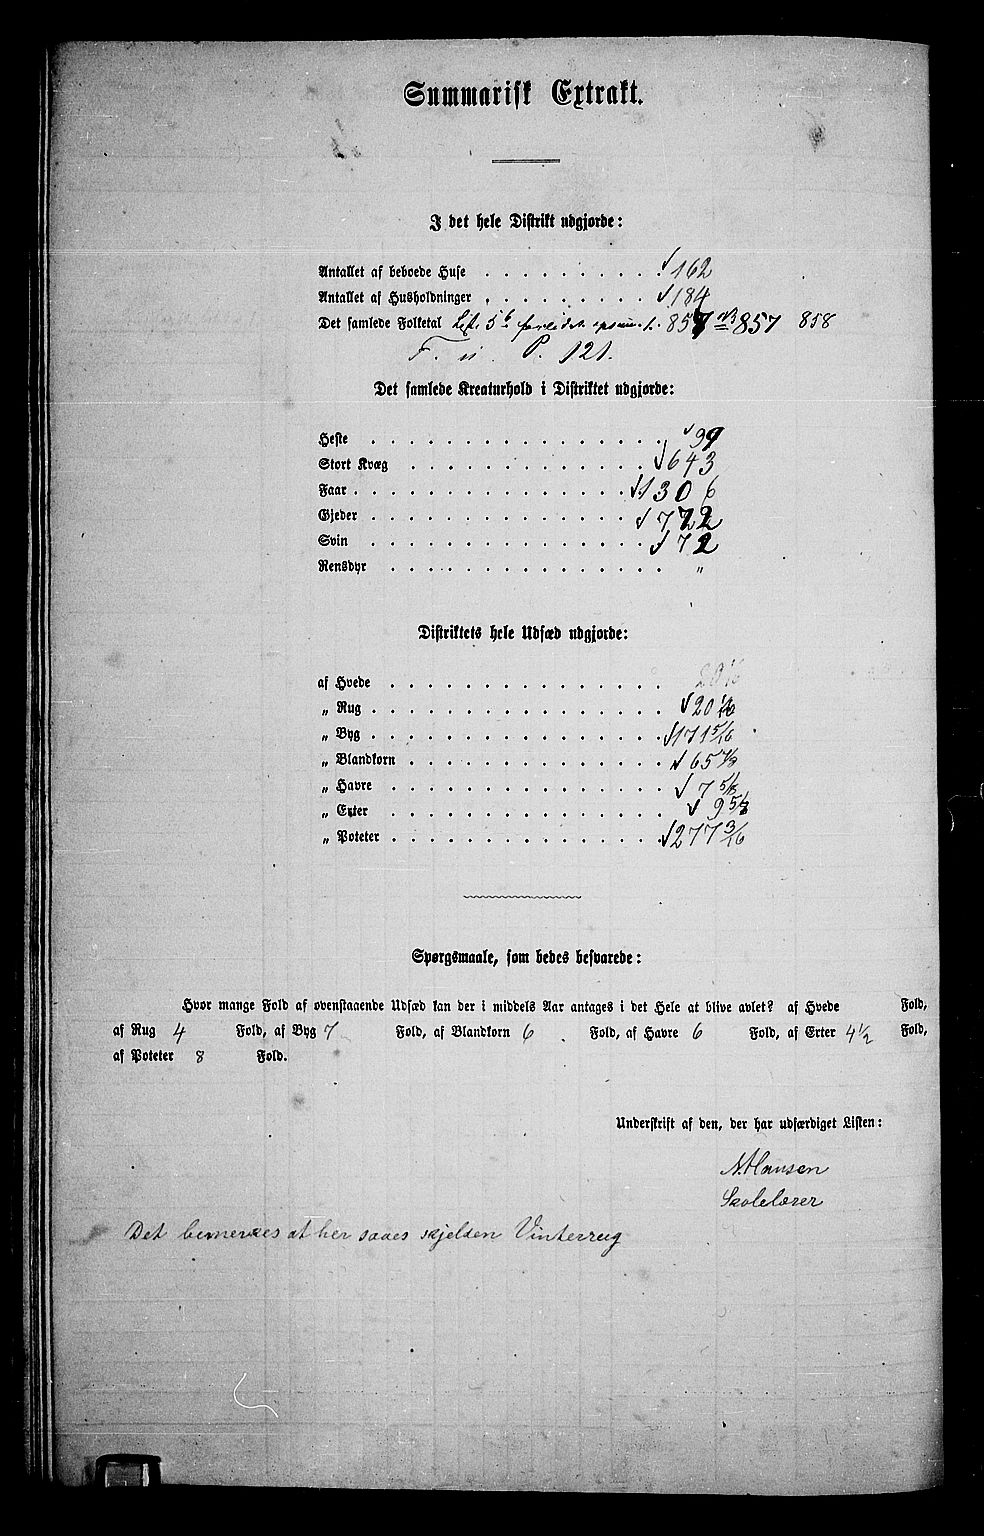 Summarisk Extrakt.
I det hele Distrikt udgjorde:
Antallet af beboede Huse . . . . . . . . . . 162
Antallet af Husholdninger . . . . . . . . . . 184
Det samlede Folketal 857 857 858
F. P. 121.
Det samlede Kreaturhold i Distriktet udgjorde:
Heste . . . . . . . . . . . . . . . . 99
Stort Kvæg . . . . . . . . . . . . . 643
Faar . . . . . . . . . . . . . . . . 1306
Gjeder . . . . . . . . . . . . . . . 722
Svin . . . . . . . . . . . . . . . . 72
Rensdyr . . . . . . . . . . . . . . . "
Distriktets hele Udsæd udgjorde:
af Hvede . . . . . . . . . . . . . . .
„ Rug . . . . . . . . . . . . . . . . 20 1/16
„ Byg . . . . . . . . . . . . . . . . 171 5/16
„ Blandkorn . . . . . . . . . . . . . 65 7/8
„ Havre . . . . . . . . . . . . . . . 7 5/8
„ Erter . . . . . . . . . . . . . . . 9 5/8
„ Poteter . . . . . . . . . . . . . . 277 3/16
Spørgsmaale, som bedes besvarede:
Hvor mange Fold af ovenstaaende Udsæd kan der i middels Aar antages i det Hele at blive avlet? af Hvede Fold,
af Rug 4 Fold, af Byg 7 Fold, af Blandkorn 6 Fold, af Havre 6 Fold, af Erter 4 1/2 Fold,
af Poteter 8 Fold.
Underskrift af den, der har udfærdiget Listen:
N. Hansen
Skolelærer
Det bemerkes at her saaes skjelden Vinterrug